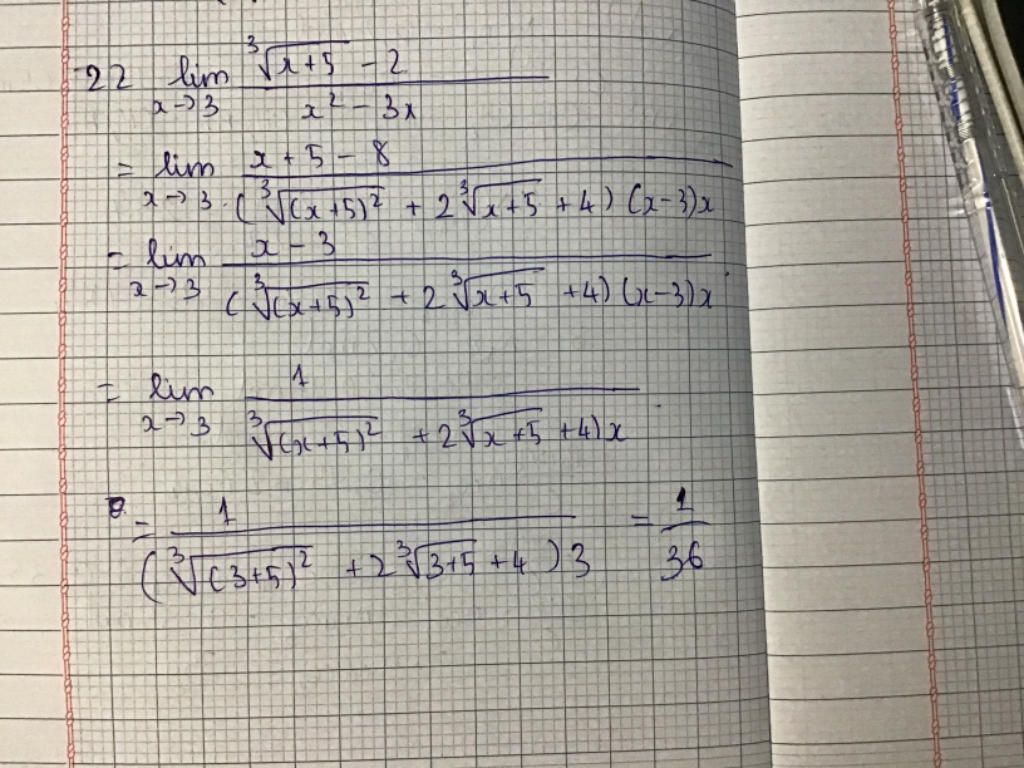 22 lim_{x→3} \frac{\sqrt[3]{x+5} - 2}{x^2 - 3x}
= lim_{x→3} \frac{x + 5 - 8}{(\sqrt[3]{(x+5)^2} + 2\sqrt[3]{x+5} + 4)(x-3)x}
= lim_{x→3} \frac{x - 3}{(\sqrt[3]{(x+5)^2} + 2\sqrt[3]{x+5} + 4)(x-3)x}
= lim_{x→3} \frac{1}{\sqrt[3]{(x+5)^2} + 2\sqrt[3]{x+5} + 4)x}
= \frac{1}{(\sqrt[3]{(3+5)^2} + 2\sqrt[3]{3+5} + 4)3} = \frac{1}{36}